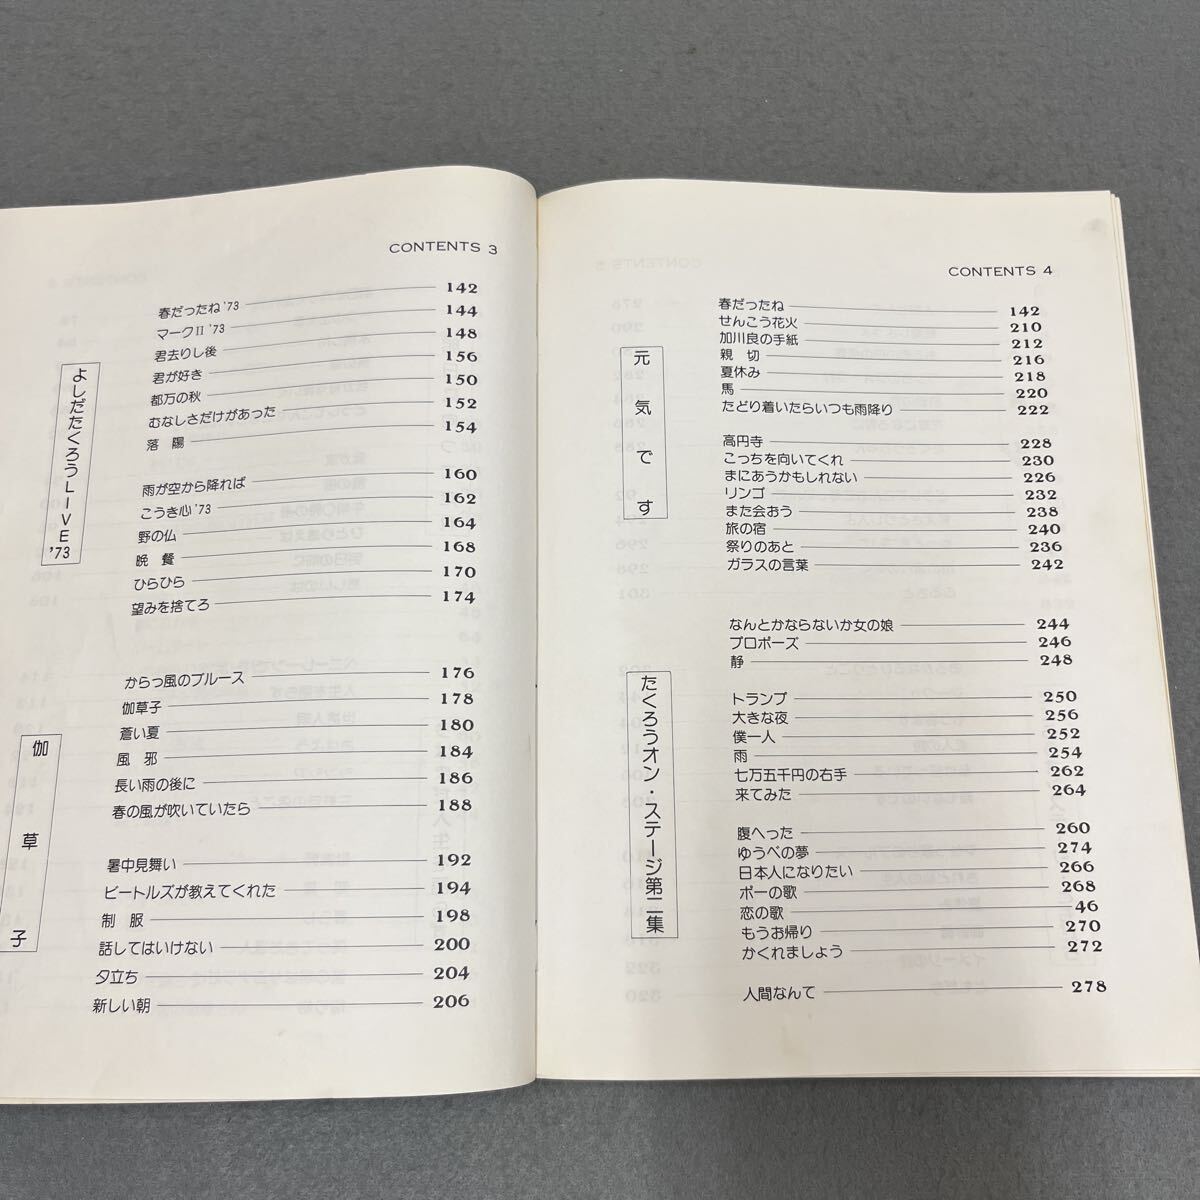 CONTENTS 3
よしだたくろうLIVE'73
春だったね'73 142
マークII'73 144
君去りし後 148
君が好き 156
都万の秋 150
むなしさだけがあった 152
落陽 154
雨が空から降れば 160
こうき心'73 162
野の仏 164
晩餐 168
ひらひら 170
望みを捨てろ 174
伽草子
からっ風のブルース 176
伽草子 178
蒼い夏 180
風邪 184
長い雨の後に 186
春の風が吹いていたら 188
暑中見舞い 192
ビートルズが教えてくれた 194
制服 198
話してはいけない 200
夕立ち 204
新しい朝 206
CONTENTS 4
元気です
春だったね 142
せんこう花火 210
加川良の手紙 212
親切 216
夏休み 218
馬 220
たどり着いたらいつも雨降り 222
高円寺 228
こっちを向いてくれ 230
まにあうかもしれない 226
リンゴ 232
また会おう 238
旅の宿 240
祭りのあと 236
ガラスの言葉 242
たくろうオン・ステージ第二集
なんとかならないか女の娘 244
プロポーズ 246
静 248
トランプ 250
大きな夜 256
僕一人 252
雨 254
七万五千円の右手 262
来てみた 264
腹へった 260
ゆうべの夢 274
日本人になりたい 266
ポーの歌 268
恋の歌 46
もうお帰り 270
かくれましょう 272
人間なんて 278